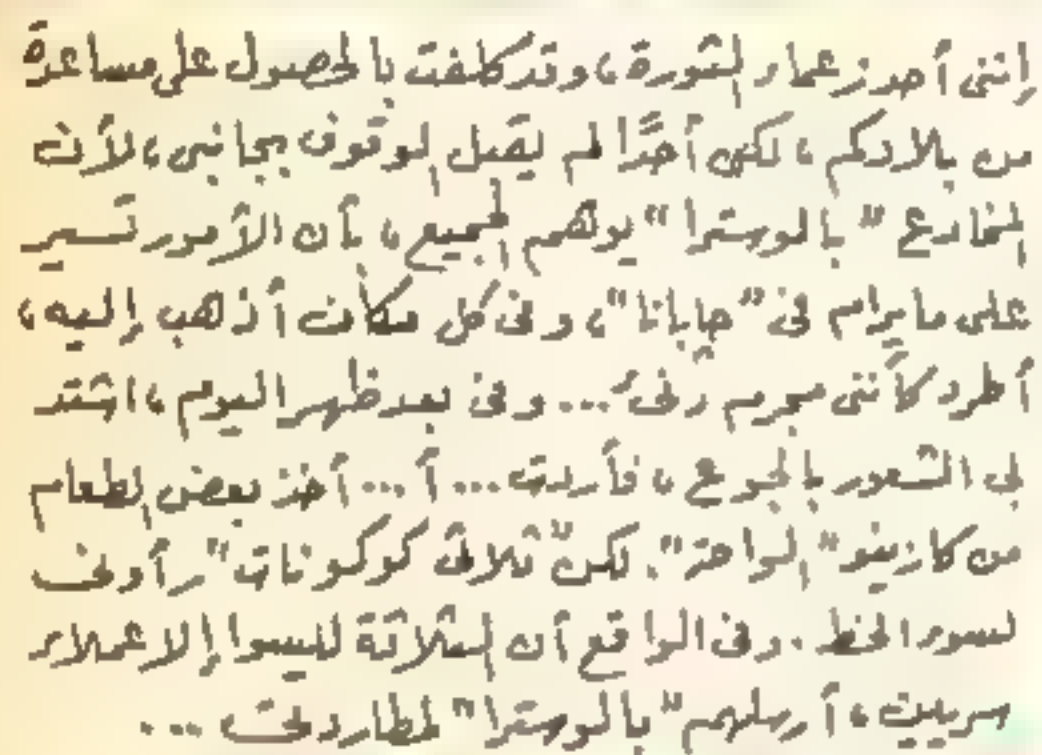 إننى أحد زعماء الثورة، وقد كلفت بالحصول على مساعدة
من بلادكم، لكن أحدًا لم يقبل الوقوف بجانبى، لأن
المخادع "بالوسترا" يوهم الجميع، بأن الأمور تسير
على ما يرام فى "جابانا"، وفى كل مكان أذهب إليه،
أطرد كأننى مجرم دنئ... وفى بعد ظهر اليوم، اشتد
بى الشعور بالجوع، فأردت... أ... أخذ بعض الطعام
من كازينو "الواحة". لكنّ ثلاث "كوكونات" رأونى
لسوء الحظ. وفى الواقع أن الثلاثة ليسوا إلا عملاء
سريين، أرسلهم "بالوسترا" لمطاردتى ...